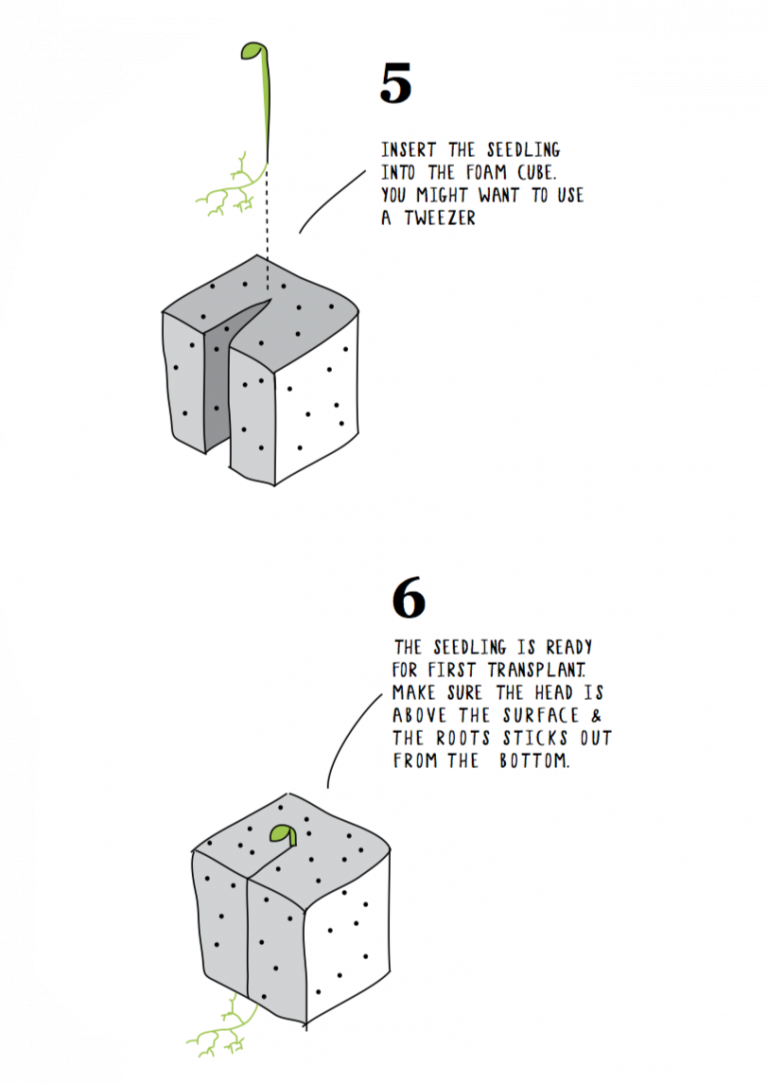 5
INSERT THE SEEDLING
INTO THE FOAM CUBE.
YOU MIGHT WANT TO USE
A TWEEZER
6
THE SEEDLING IS READY
FOR FIRST TRANSPLANT.
MAKE SURE THE HEAD IS
ABOVE THE SURFACE &
THE ROOTS STICKS OUT
FROM THE BOTTOM.